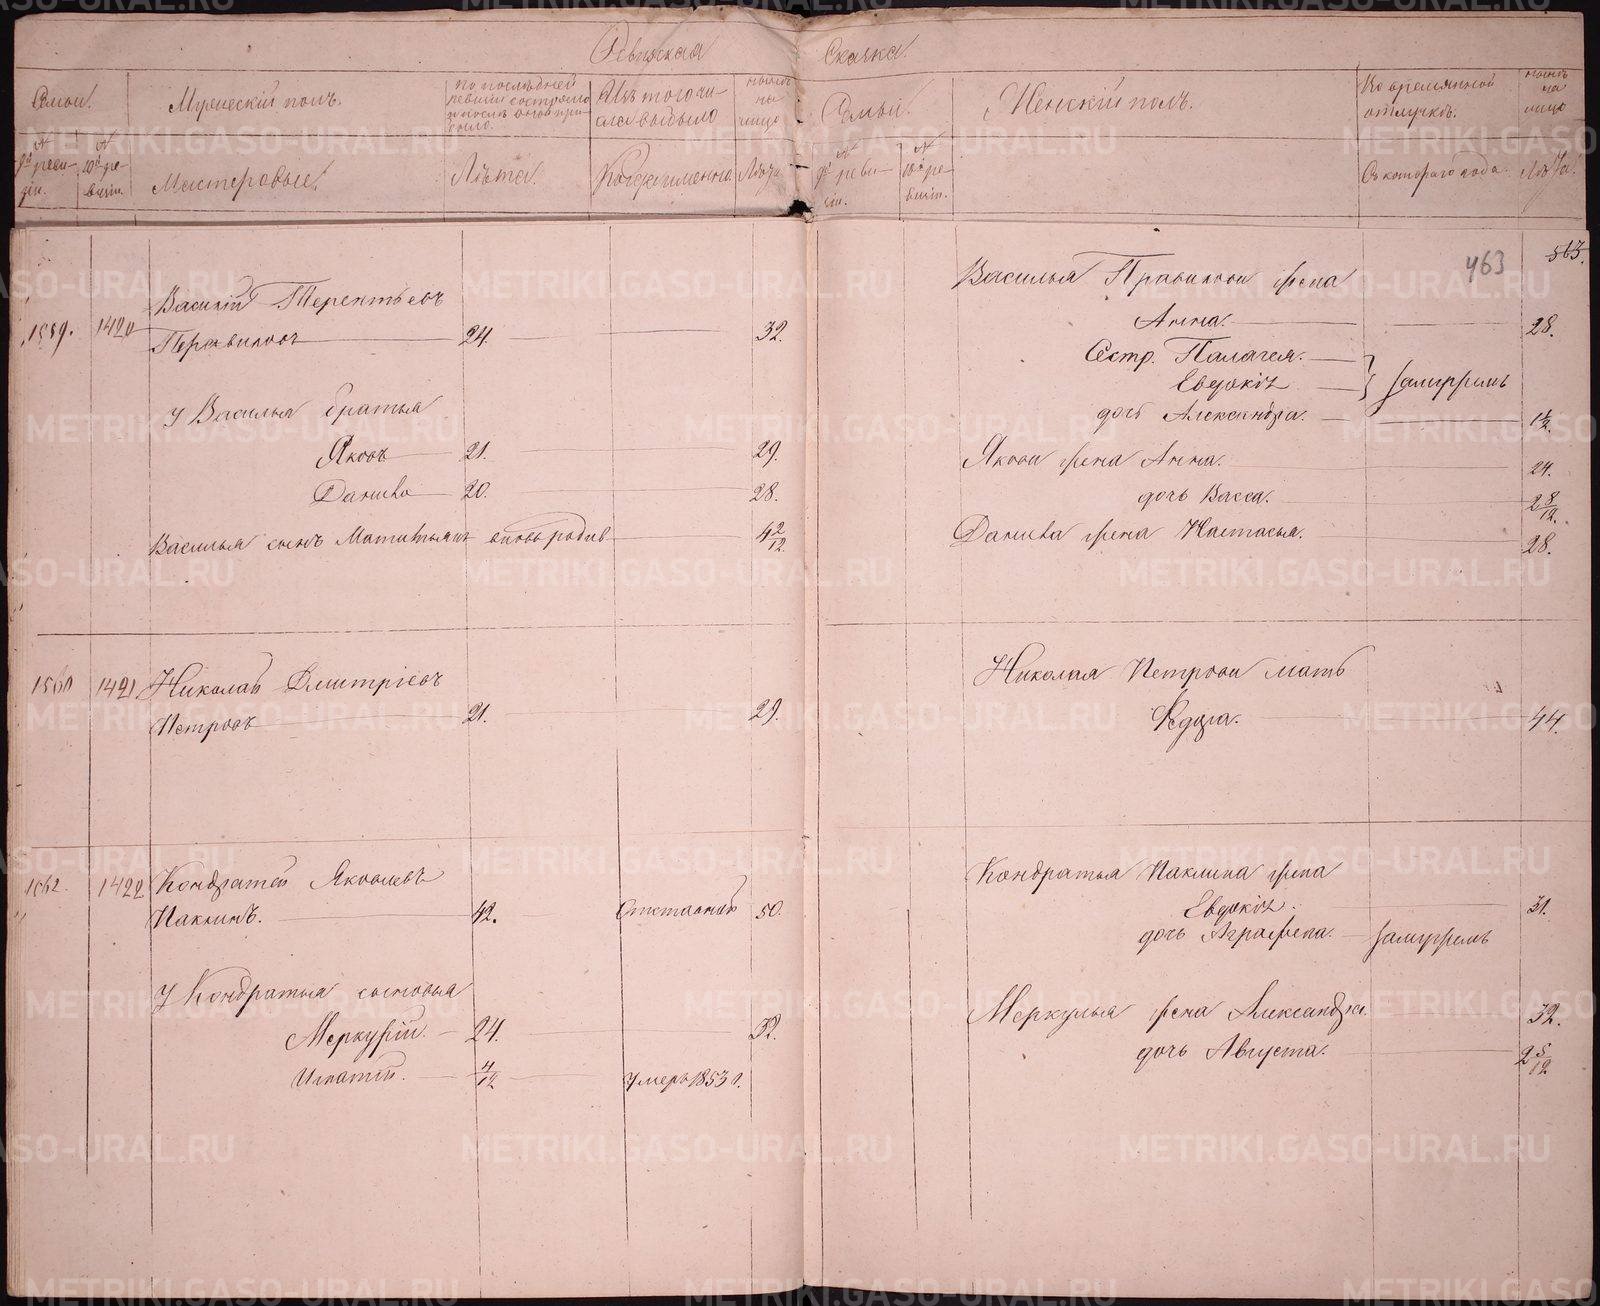 Ревизская Сказка.
Семьи.
Мужескій полъ.
По последней ревизіи состояло и после оной прибыло.
Изъ того числа выбыло
ныне на лицо
Семьи.
Женскій полъ.
Во временной отлучкѣ.
ныне на лицо
№ 9й ревизіи.
№ 10й ревизіи.
Мастеровые.
Лѣта.
Когда именно
Лѣта
№ 9й ревизіи.
№ 10й ревизіи.
Съ котораго года.
Лѣта.
463
513.
1559. 1420 Василій Терентьевъ
Правиловъ 24. 32.
У Василья братья
Яковъ 21. 29.
Данило 20. 28.
Василья сынъ вновь родив 4 2/12.
Василья Правилова жена
Анна. 28.
Сестр. Палагея.
Евдокія замужемъ
дочь Александра. 1 1/2.
Якова жена Анна. 24.
дочь Васса. 2 8/12.
Данила жена Настасья. 28.
1560 1421 Николай Дмитріевъ
Петровъ 21. 29.
Николая Петрова мать
Федора. 44.
1562. 1422 Кондратей Яковлевъ
Паклинъ. 42. Отставной 50.
У Кондратья сыновья
Меркурій. 24. 32.
Игнатій. 4/12 Умеръ 1853 г.
Кондратья Паклина жена
Евдокія. 31.
дочь Аграфена. замужемъ
Меркулья жена Александра. 32.
дочь Августа. 2 5/12
METRIKI.GASO-URAL.RU